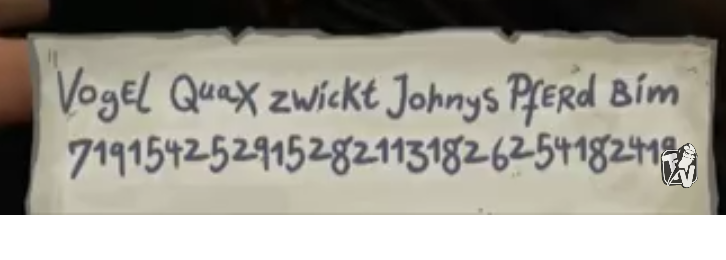 VogEl QuaX zwickt Johnys PfERd Bim
7191542529152821131826254182419